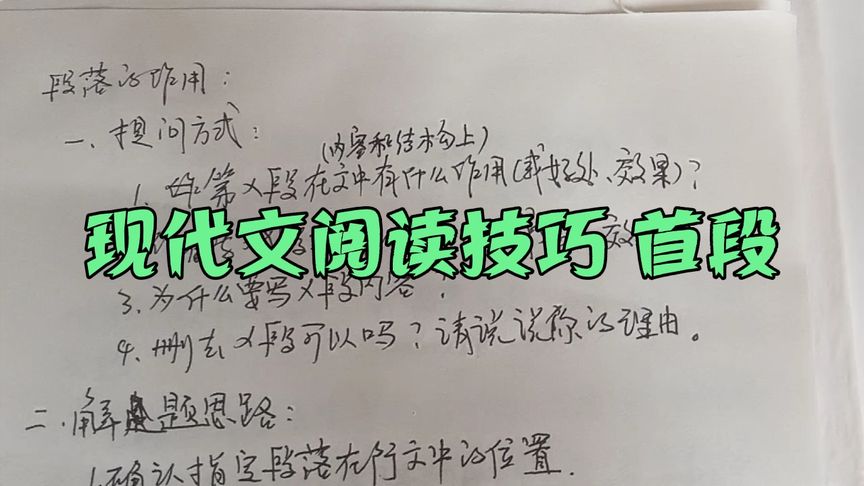 段落的作用:
一、提问方式:
(内容和结构上)
1. 第X段在文中有什么作用(或好处、效果)?
现代文阅读技巧 首段
3. 为什么要写X段内容?
4. 删去X段可以吗?请说说你的理由。
二、解题思路:
1.确认指定段落在行文中的位置.